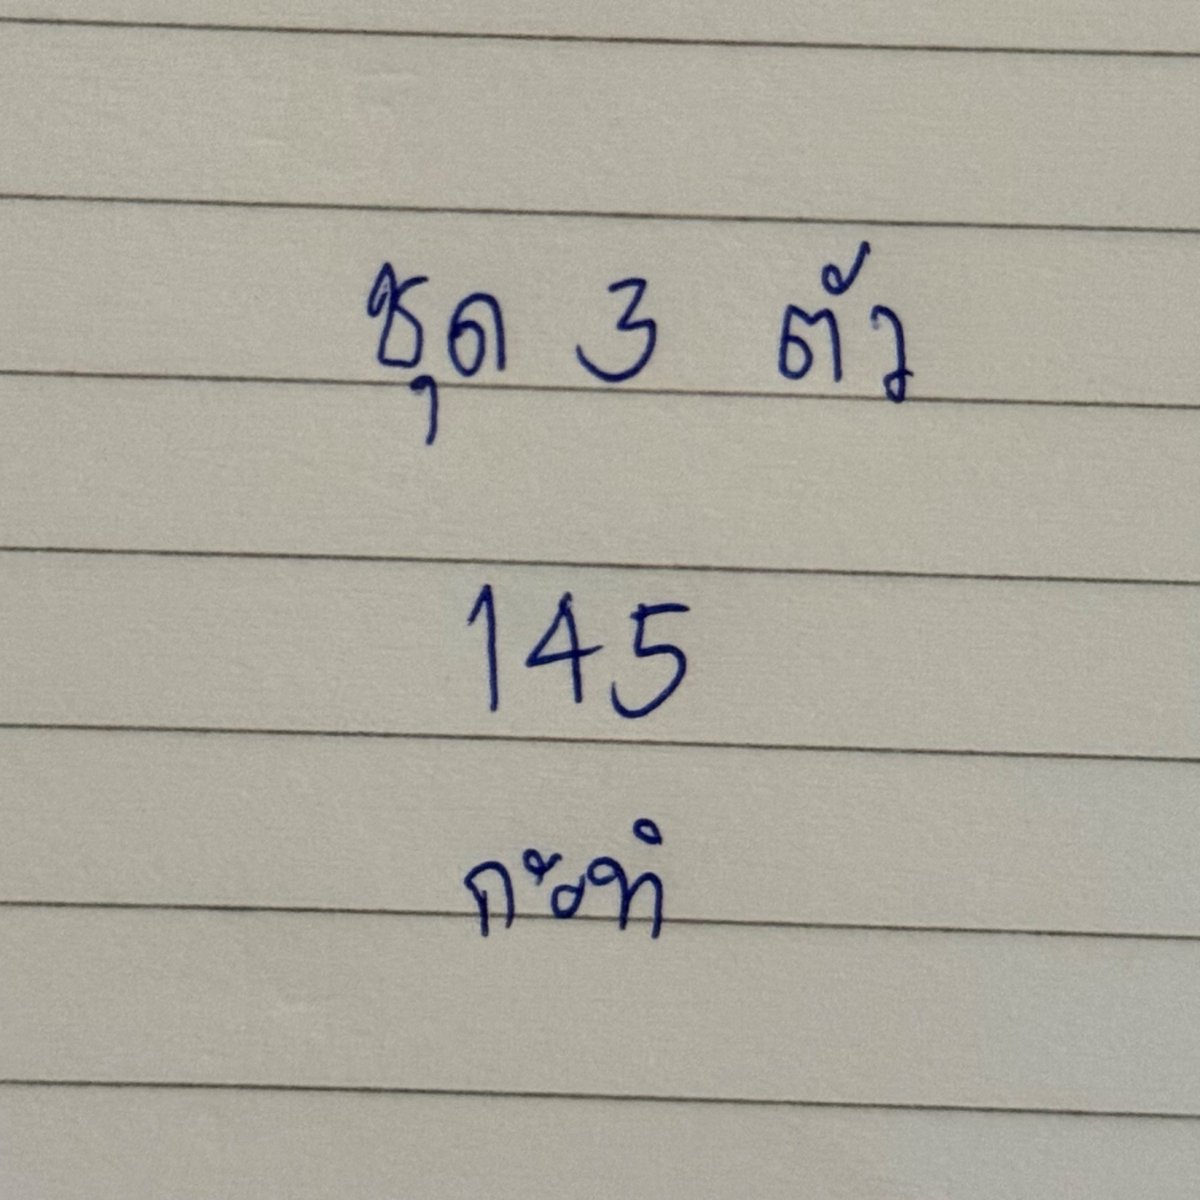 ชุด 3 ตัว
145
กะทิ